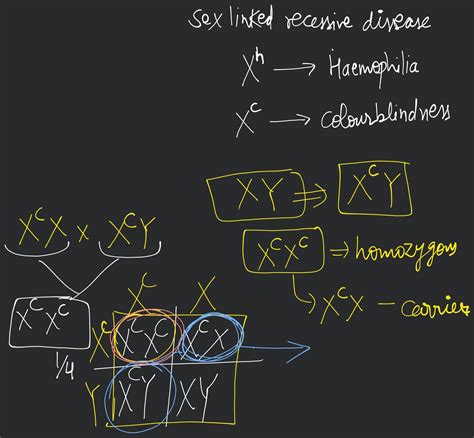 Sex linked recessive disease
X^h → Haemophilia
X^c → colourblindness
XY ⇒ X^cY
X^cX^c ⇒ homozygous
→ X^cX – carrier
X^cX × X^cY
X^cX^c
1/4
X^c X
X^c X^cX^c X^cX
Y X^cY XY